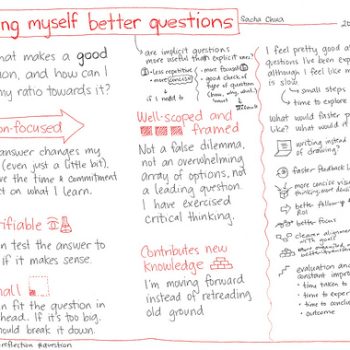 ng myself better questions
Sacha Chua
20
hat makes a good
ion, and how can I
my ratio towards it?
on-focused
answer changes my
(even just a little bit).
ve the time & commitment
t on what I learn.
ifiable
n test the answer to
if it makes sense.
mall
n fit the question in
head.. If it's too big,
ould break it down.
reflection #question
are implicit questions
more useful than explicit ones?
less repetitive
more concise
if I need to
more focused
good check of
type of question
(how, why, what,
Well-scoped and
framed
Not a false dilemma,
not an overwhelming
array of options, not
a leading question.
I have exercised
critical thinking.
Contributes new
knowledge
I'm moving forward
instead of retreading
old ground
I feel pretty good a
questions I've been exp
although I feel like m
is slow.
small steps
time to explore
What would faster p
like? What would it
writing instead
of drawing?
faster feedback l
more concise vis
better follow-up
ROI
better focus
cleaner alignmen
with goals
evaluation and
constant improv
time taken to
time to exper
time to conclu
outcome